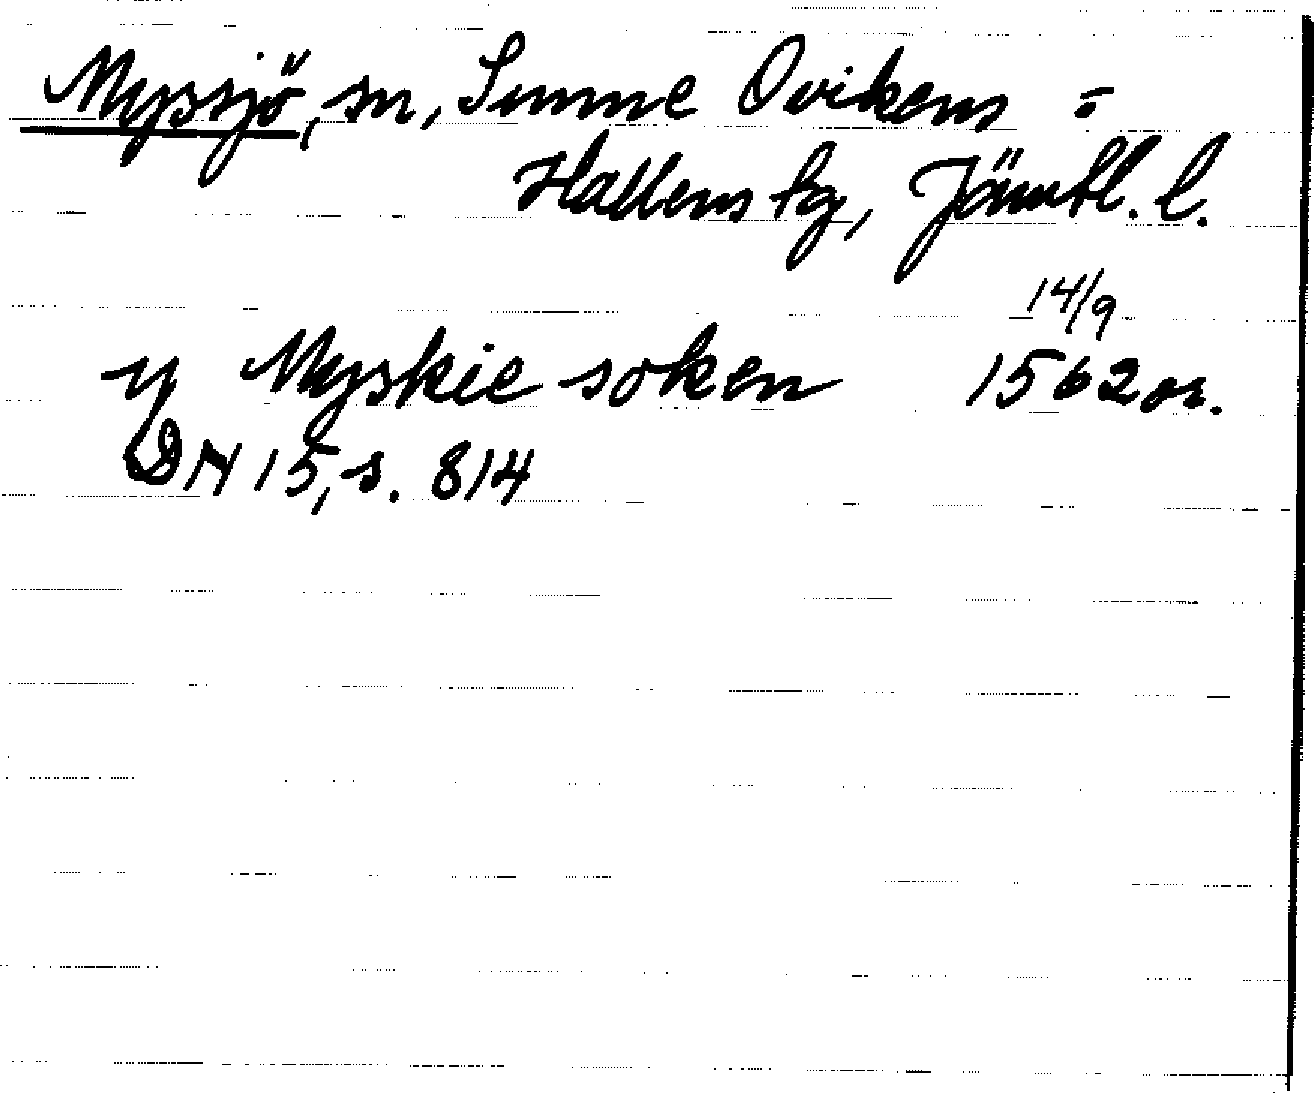 Myssjö, sn, Sunne Ovikens =
Hallens tg, Jämtl. l.
14/9
y Myskie soken 1562 or.
DN 15, s. 814